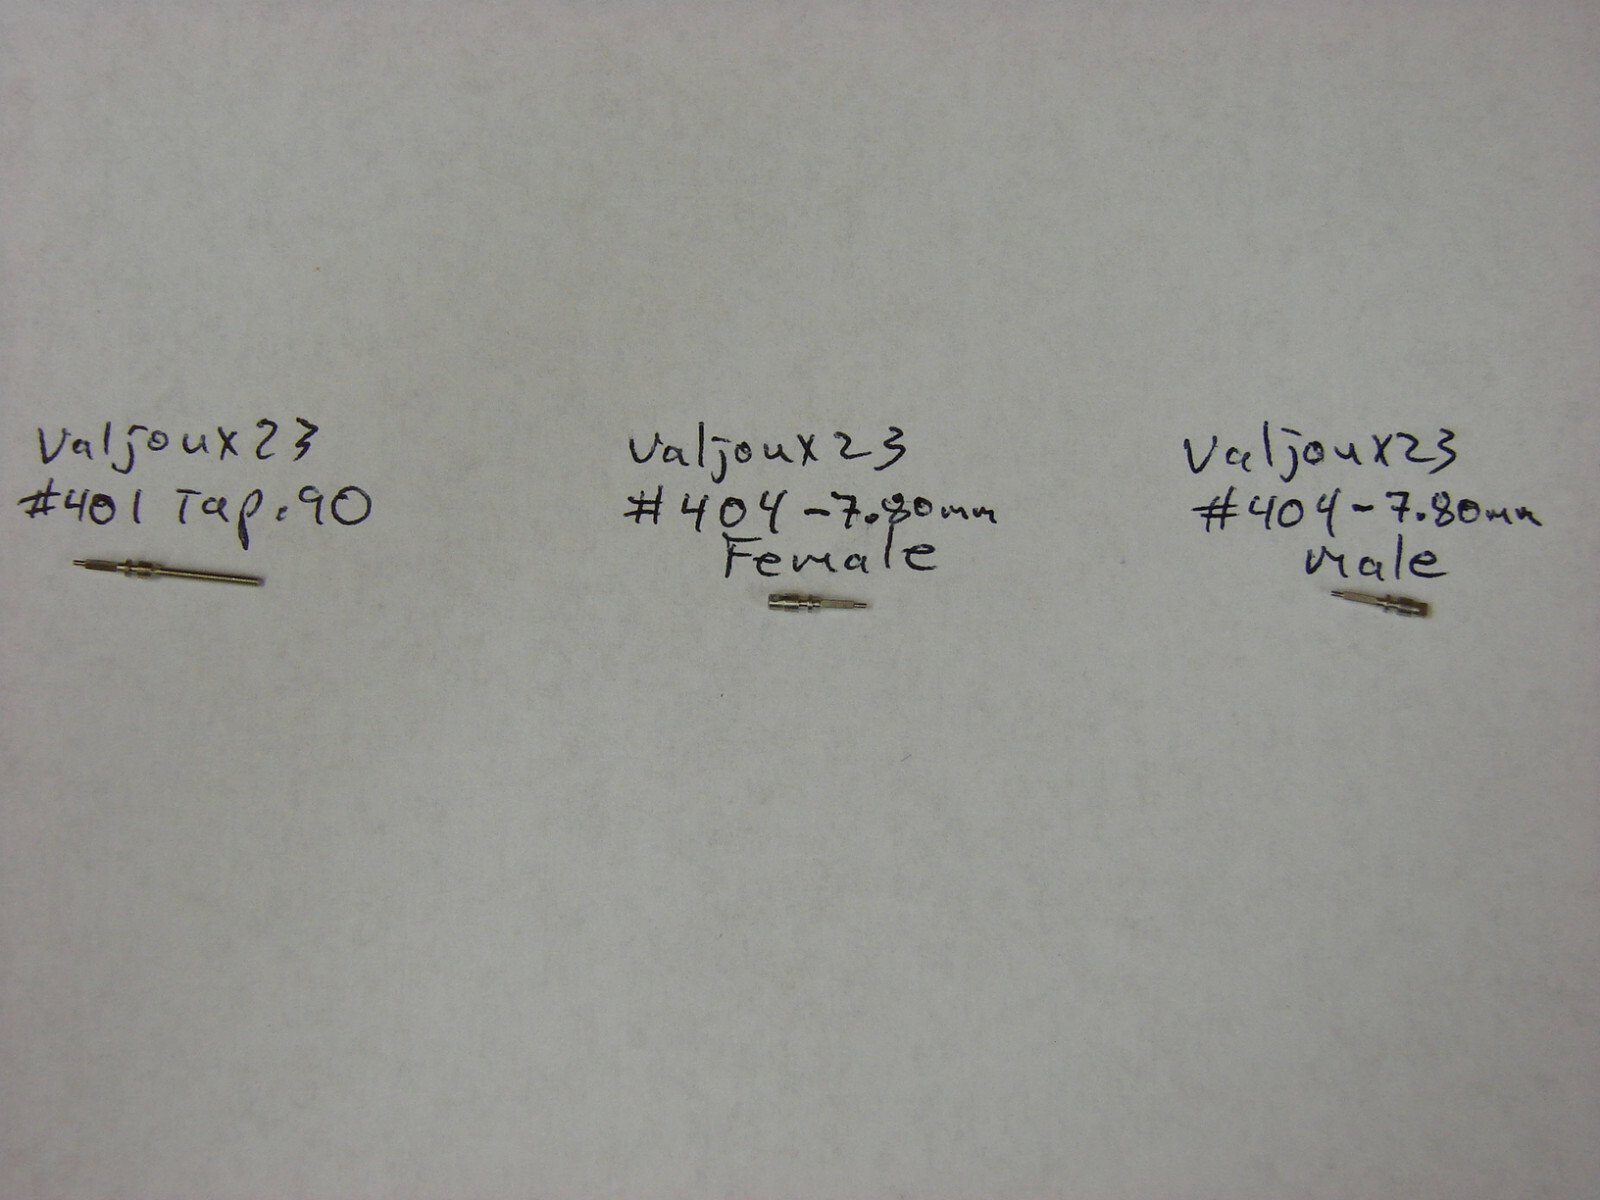 Valjoux 23
#401 Tap .90
Valjoux 23
#404 - 7.80mm
Female
Valjoux 23
#404 - 7.80mm
Male